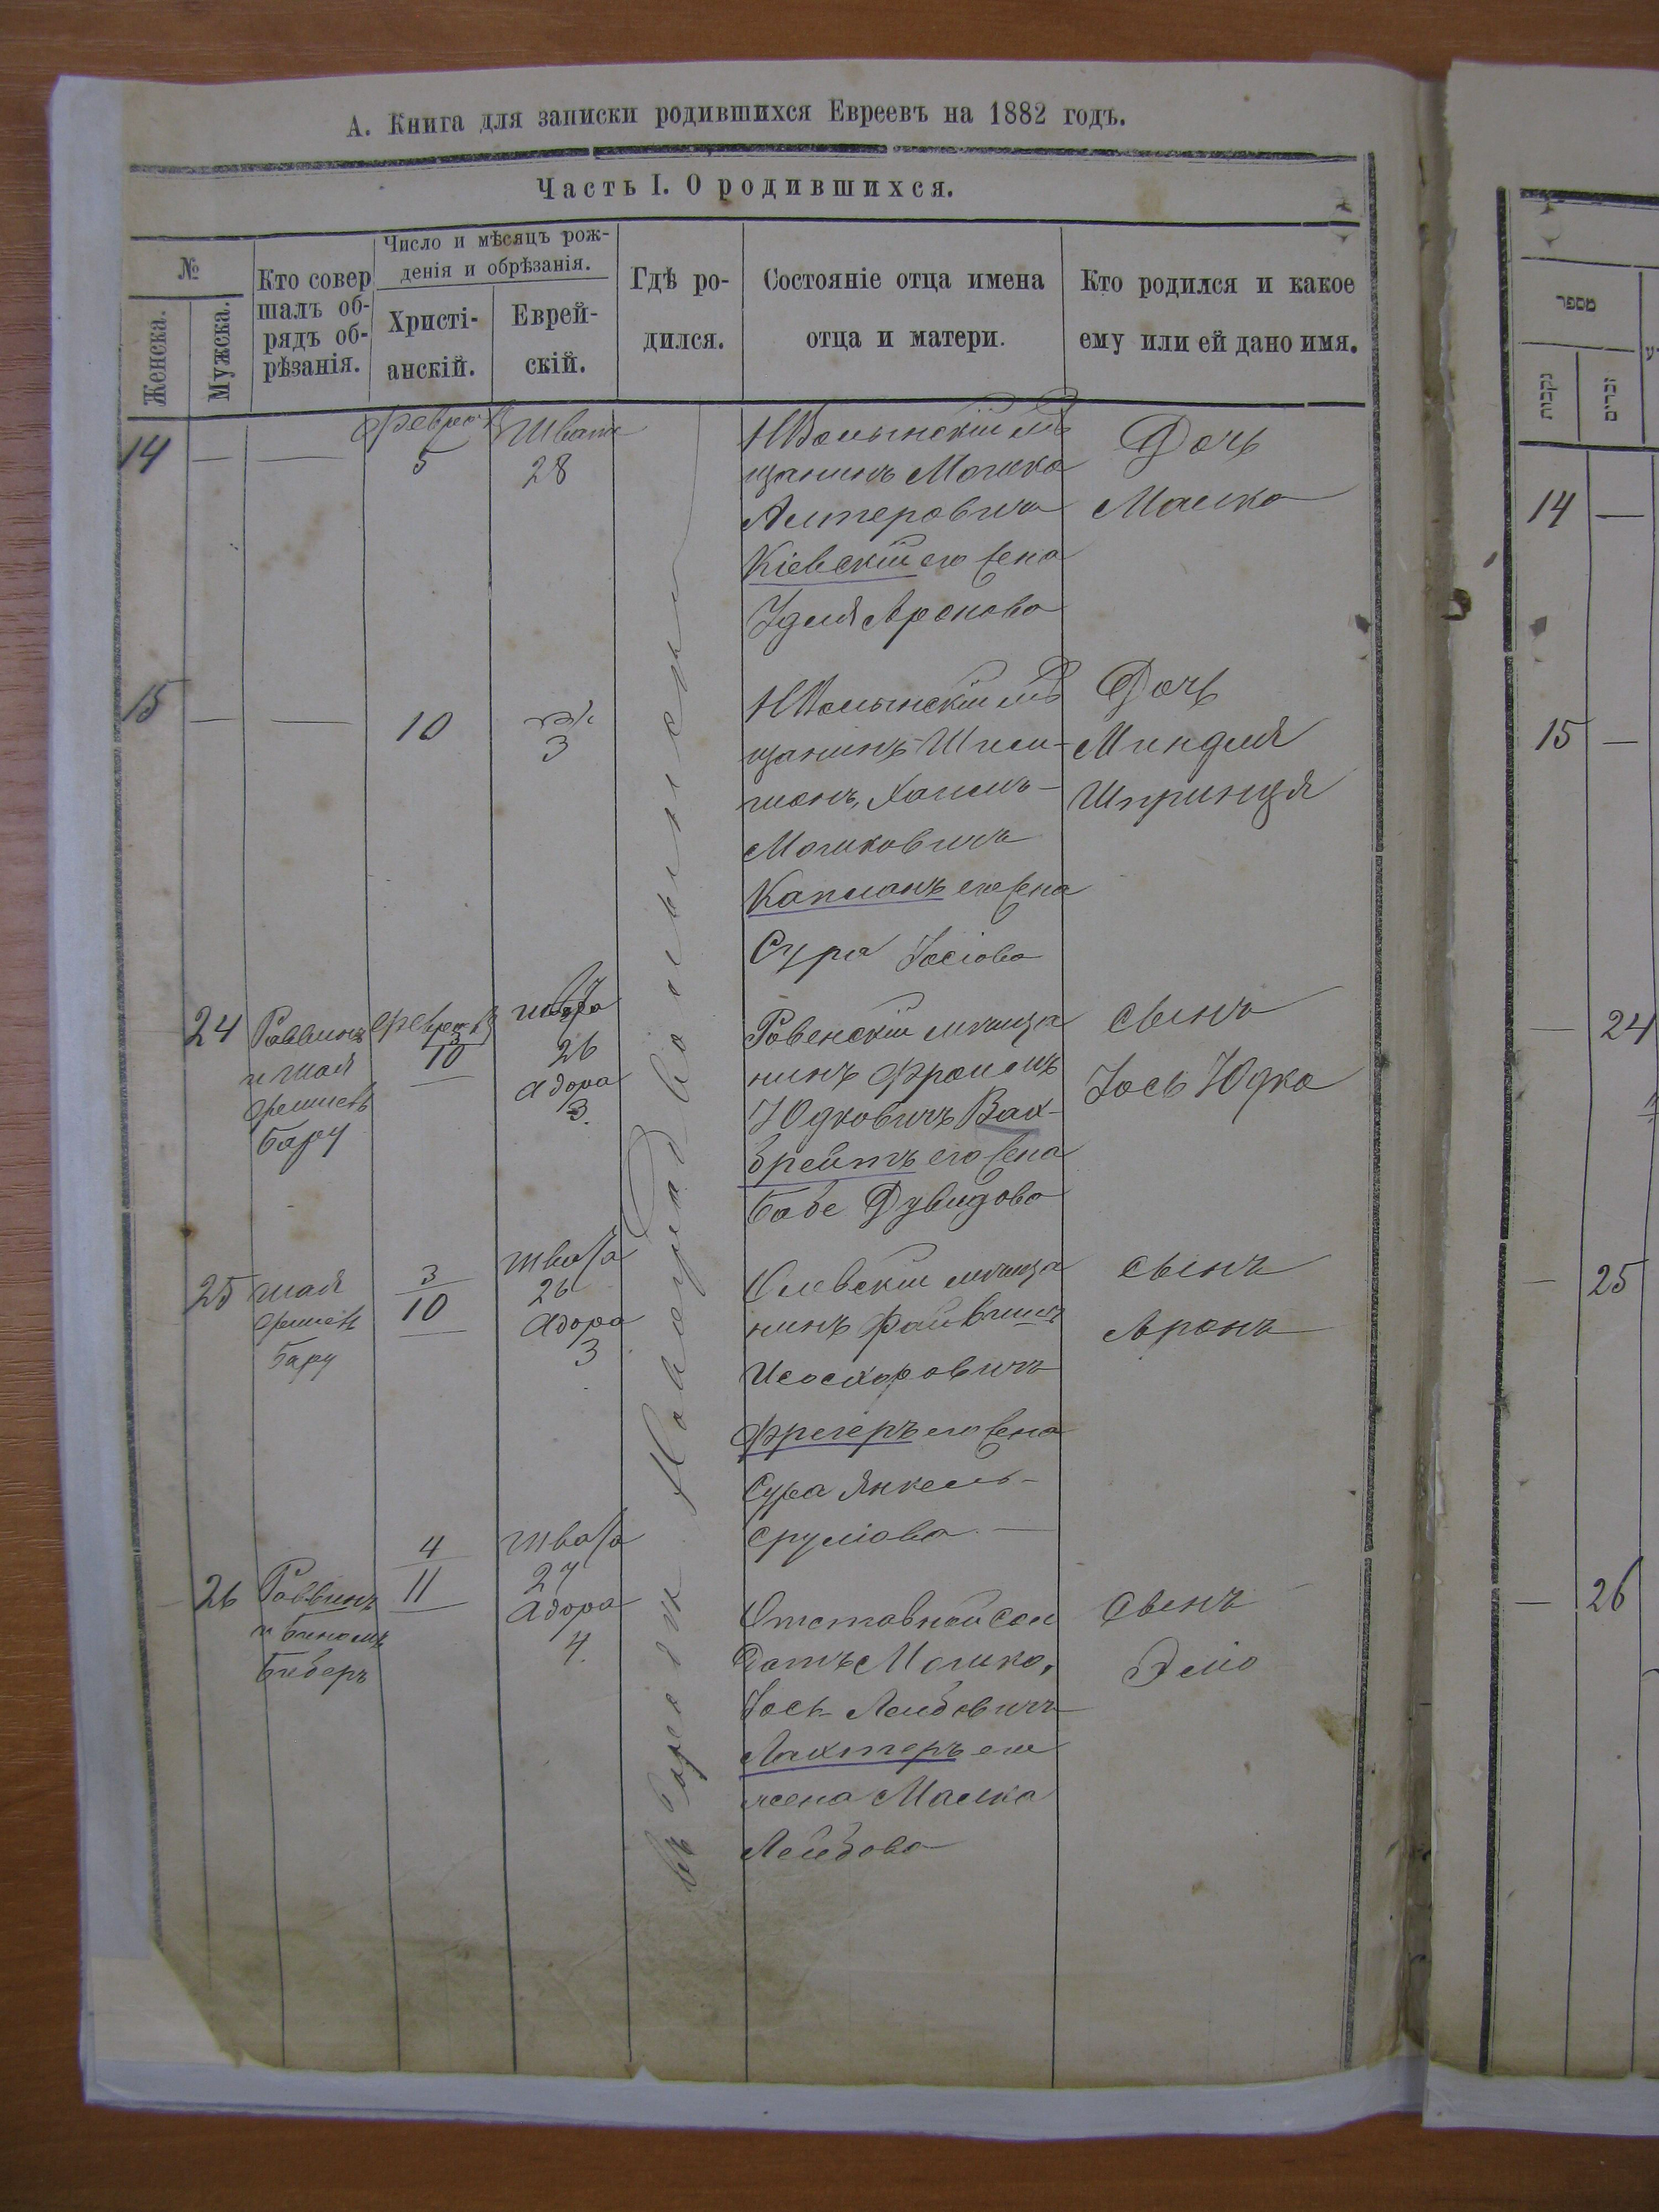 А. Книга для записки родившихся Евреевъ на 1882 годъ.
Часть I. О родившихся.
№
Женска.
Мужска.
Кто совер
шалъ об-
рядъ об-
рѣзанія.
Число и мѣсяцъ рож-
денія и обрѣзанія.
Христі-
анскій.
Еврей-
скій.
Гдѣ ро-
дился.
Состояніе отца имена
отца и матери.
Кто родился и какое
ему или ей дано имя.
въ городѣ Новоградволынскѣ
14 — —
5
Швата
28
НВолынскій мѣ
щанинъ Мошко
Альтеровичъ
Кіевскій его жена
Удля Аронова
Дочь
Малка
15 — —
10
3
НВолынскій мѣ
щанинъ Шли-
монъ, Хаимъ-
Мошковичъ
Капланъ его жена
Сура Іосіова
Дочь
Миндля
Шпринця
24
Раввинъ
и Шая
Бару
3
10
26
Адара
3.
Ровенскій мѣща
нинъ Фроимъ
Юдковичъ Вах-
брейтъ его жена
Бабе Дувидова
Сынъ
Іось Юдко
25
Шая
Бару
3
10
Швата
26
Адара
3
Олевскій мѣща
нинъ Файвишъ
Исохоровичъ
Фригеръ его жена
Сура Янкель-
Срулiова —
Сынъ
Аронъ
26
Раввинъ
и Биномъ
Биберъ
4
11
Швата
27
Адара
4.
Отставной сол
датъ Мошко,
Іось Лейбовичъ
Лахтеръ его
жена Малка
Лейбова
Сынъ
Эліо
מספר
נקבות
זכרים
14 —
15 —
— 24
— 25
— 26